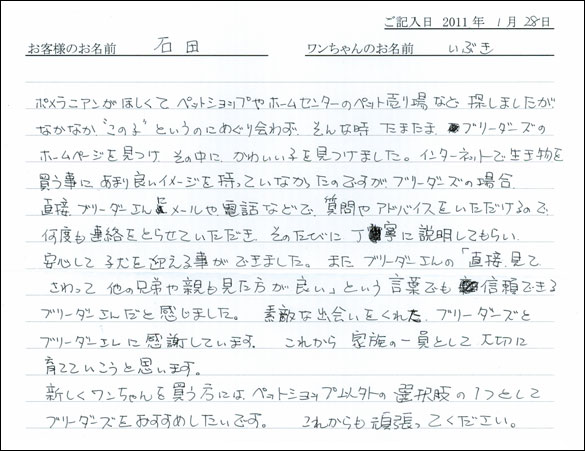 ご記入日 2011年 1月 28日
お客様のお名前 石田 ワンちゃんのお名前 いぶき
ポメラニアンがほしくて ペットショップやホームセンターのペット売り場など 探しましたが、
なかなか"この子"というのにめぐり会わず、そんな時 たまたま ブリーダーズの
ホームページを見つけ、その中に、かわいい子を見つけました。インターネットで生き物を
買う事に あまり良いイメージを持っていなかったのですが、ブリーダーズの場合、
直接 ブリーダーさんにメールや電話などで、質問やアドバイスをいただけるので、
何度も連絡をとらせていただき、そのたびに 丁寧に説明してもらい、
安心して子犬を迎える事ができました。また ブリーダーさんの「直接、見て、
さわって 他の兄弟や親も見た方が良い」という言葉でも 信頼できる
ブリーダーさんだと感じました。 素敵な出会いをくれた、ブリーダーズと
ブリーダーさんに感謝しています。 これから 家族の一員として大切に
育てていこうと思います。
新しくワンちゃんを買う方には、ペットショップ以外の選択肢の1つとして
ブリーダーズをおすすめしたいです。 これからも頑張ってください。